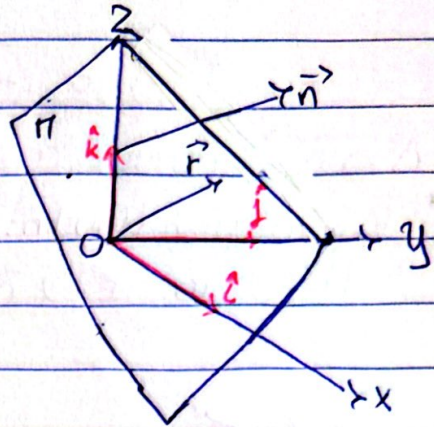 Z
n⃗
π
k̂
r⃗
ĵ
O
y
î
x